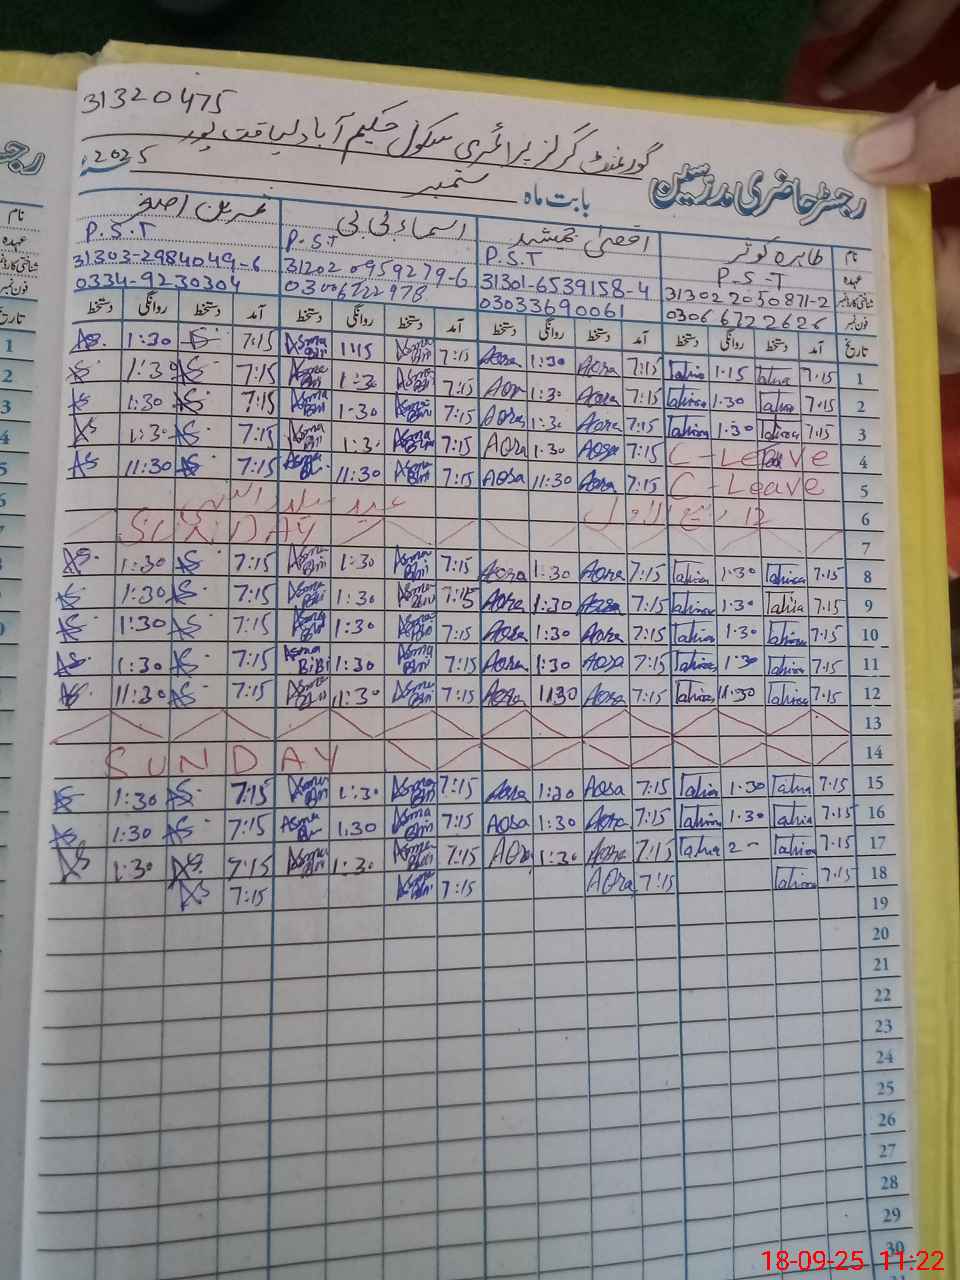 31320475
گورنمنٹ گرلز پرائمری سکول حکیم آباد لیاقت پور
رجسٹر حاضری مدرسین بابت ماہ ستمبر 2025ء
نام طاہرہ کوثر اقصیٰ جمشید اسماء بی بی
عہدہ P.S.T P.S.T P.S.T P.S.T
شناختی کارڈ نمبر 31302 2050871-2 31301-6539158-4 31202 0959279-6 31303-2984049-6
فون نمبر 0306 6722626 03033690061 03006722978 0334-9230304
تاریخ آمد دستخط روانگی دستخط آمد دستخط روانگی دستخط آمد دستخط روانگی دستخط آمد دستخط روانگی دستخط
1 7:15 Tahira 1:15 Tahira 7:15 Aqsa 1:30 Aqsa 7:15 Asma Bibi 1:15 Asma Bibi 7:15 1:30 AS.
2 7:15 Tahira 1:30 Tahira 7:15 Aqsa 1:30 Aqsa 7:15 Asma Bibi 1:30 Asma Bibi 7:15 AS 1:30 AS
3 7:15 Tahira 1:30 Tahira 7:15 Aqsa 1:30 Aqsa 7:15 Asma Bibi 1:30 Asma Bibi 7:15 AS 1:30 AS
4 C-Leave 7:15 Aqsa 1:30 Aqsa 7:15 Asma Bibi 1:30 Asma Bibi 7:15 AS 1:30 AS
5 C-Leave 7:15 Aqsa 11:30 Aqsa 7:15 Asma Bibi 11:30 Asma Bibi 7:15 AS 11:30 AS
6 12 ربیع الاول عید میلاد النبی
7 SUNDAY
8 7:15 Tahira 1:30 Tahira 7:15 Aqsa 1:30 Aqsa 7:15 Asma Bibi 1:30 Asma Bibi 7:15 AS 1:30 AS
9 7:15 Tahira 1:30 Tahira 7:15 Aqsa 1:30 Aqsa 7:15 Asma Bibi 1:30 Asma Bibi 7:15 AS 1:30 AS
10 7:15 Tahira 1:30 Tahira 7:15 Aqsa 1:30 Aqsa 7:15 Asma Bibi 1:30 Asma Bibi 7:15 AS 1:30 AS
11 7:15 Tahira 1:30 Tahira 7:15 Aqsa 1:30 Aqsa 7:15 Asma Bibi 1:30 Asma BiBi 7:15 AS 1:30 AS
12 7:15 Tahira 11:30 Tahira 7:15 Aqsa 11:30 Aqsa 7:15 Asma Bibi 11:30 Asma Bibi 7:15 AS 11:30 AS
13
14 SUNDAY
15 7:15 Tahira 1:30 Tahira 7:15 Aqsa 1:30 Aqsa 7:15 Asma Bibi 1:30 Asma Bibi 7:15 AS 1:30 AS
16 7:15 Tahira 1:30 Tahira 7:15 Aqsa 1:30 Aqsa 7:15 Asma Bibi 1:30 Asma Bibi 7:15 AS 1:30 AS
17 7:15 Tahira 2- Tahira 7:15 Aqsa 1:30 Aqsa 7:15 Asma Bibi 1:30 Asma Bibi 7:15 AS 1:30 AS
18 7:15 Tahira 7:15 Aqsa 7:15 Asma Bibi 7:15 AS
19
20
21
22
23
24
25
26
27
28
29
30
18-09-25 11:22